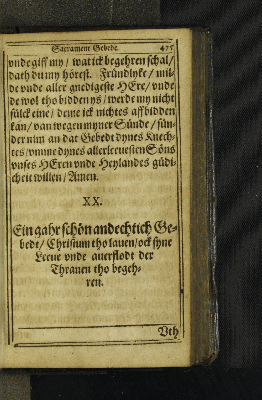 Sacrament Gebede. 475
vnde giff my / wat ick begehren schal /
dath du my hörest. Fründlyke / mil-
de vnde aller gnedigeste HEre / vnde
de wol tho bidden ys / werde my nicht
sülck eine / deme ick nichtes affbidden
kan / van wegen myner Sünde / sün-
der nim an dat Gebedt dynes Knech-
tes / vmme dynes allerleeuesten Söns
vnses HEren vnde Heylandes güdi-
cheit willen / Amen.
XX.
Ein gahr schön andechtich Ge-
bedt / Christum tho lauen / ock syne
Leeue vnde auerflodt der
Thranen tho begeh-
ren.
Vth